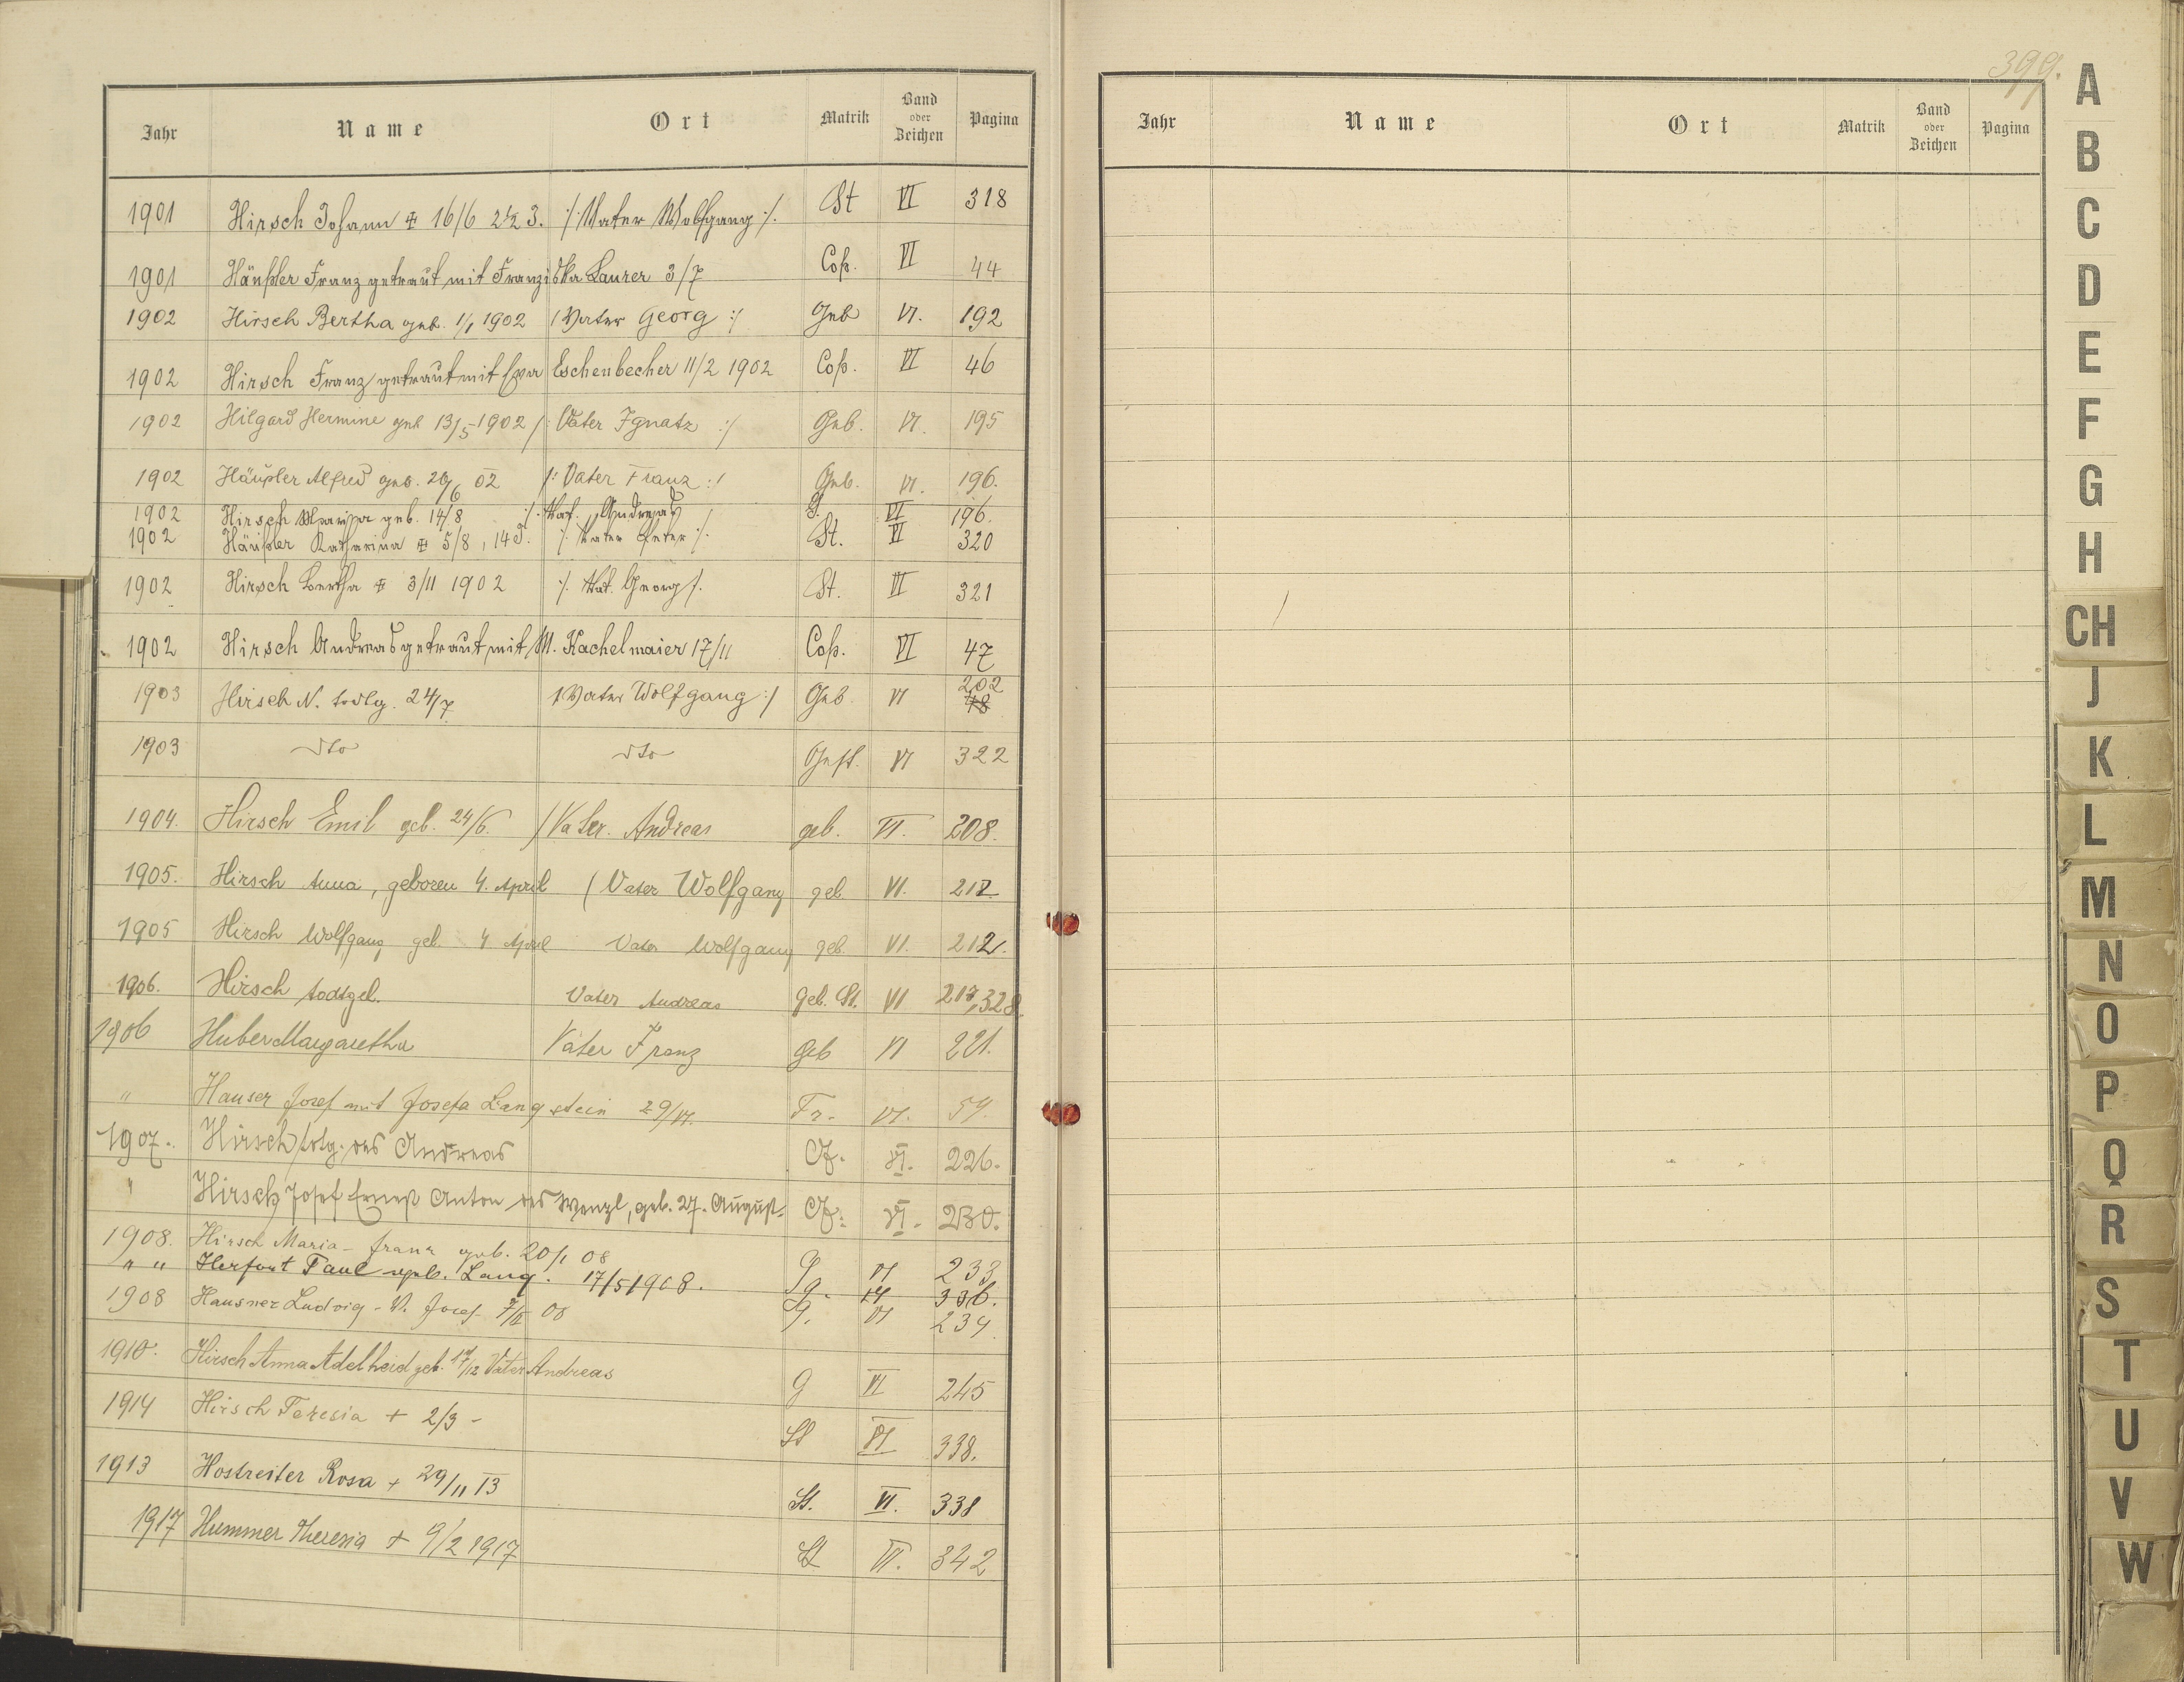 Jahr Name Ort Matrik Band oder Zeichen Pagina
1901 Hirsch Johann ✠ 16/6 2½ J. /: Vater Wolfgang :/. St VI 318
1901 Häußler Franz getraut mit Franziska Laurer 3/7 Cop. VI 44
1902 Hirsch Bertha geb. 1/1 1902 /Vater Georg :/ Geb VI. 192
1902 Hirsch Franz getraut mit Eva Eschenbecher 11/2 1902 Cop. VI 46
1902 Hilgard Hermine geb 13/5 1902 /: Vater Ignatz :/ Geb. VI. 195
1902 Häußler Alfred geb. 20/6 02 /: Vater Franz :/ Geb. VI. 196.
1902 Hirsch Maria geb. 14/8 /. Vat. Andreas G. VI 196.
1902 Häußler Katharina ✠ 5/8, 14 J. /. Vater Peter /. St. VI 320
1902 Hirsch Bertha ✠ 3/11 1902 /. Vat. Georg /. St. VI 321
1902 Hirsch Andreas getraut mit M. Kachelmaier 17/11 Cop. VI 47
1903 Hirsch N. todtg. 24/7 /Vater Wolfgang :/ Geb VI 202
1903 dto dto Gest. VI 322
1904. Hirsch Emil geb. 24/6. /Vater. Andreas geb. VI. 208.
1905. Hirsch Anna, geboren 4. April (Vater Wolfgang geb VI. 212
1905 Hirsch Wolfgang geb. 4 April Vater Wolfgang geb. VI. 212.
1906. Hirsch todtgeb. Vater Andreas Geb. St. VI 217, 328.
1906 Huber Margaretha Vater Franz Geb VI 221.
" Hauser Josef mit Josefa Langstein 29/VI. Tr. VI. 54.
1907. Hirsch todtg. des Andreas G. VI. 226.
" Hirsch Josef Ernest Anton des Wenzl, geb. 27. August. G. VI. 230.
1908. Hirsch Maria - Franz geb. 20/1 08 G VI 233
" " Herfort Paul geb. Lang. 17/5 1908. VI 336.
1908 Hausner Ludwig - V. Josef 08 G. VI 234.
1910. Hirsch Anna Adelheid geb. 17/12 Vater Andreas G VI 245
1914 Hirsch Teresia + 2/3 - St VI 338.
1913 Hostreiter Rosa + 29/11 13 St. VI. 338
1917 Hummer Theresia + 9/2 1917 St VI. 342
399.
Jahr Name Ort Matrik Band oder Zeichen Pagina
A
B
C
D
E
F
G
H
CH
J
K
L
M
N
O
P
Q
R
S
T
U
V
W